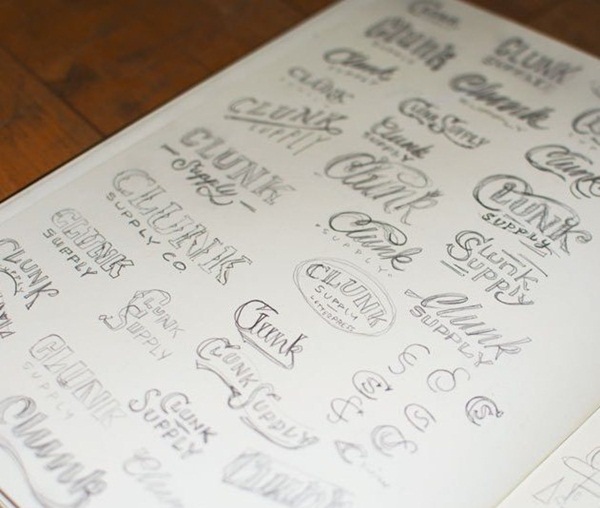 Clunk
CLUNK
Clunk
SUPPLY
Clunk
SUPPLY
CLUNK
CLUNK
SUPPLY
Clunk
SUPPLY
Clunk
CLUNK
Supply
Clunk
CLUNK
SUPPLY
CLUNK
SUPPLY CO
Clunk
SUPPLY
Clunk
Supply
CLUNK
SUPPLY
CLUNK
SUPPLY
LETTERPRESS
Clunk
SUPPLY
CLUNK
CLUNK
SUPPLY
Clunk
CLUNK SUPPLY
CLUNK
SUPPLY
CLUNK
SUPPLY
Clunk